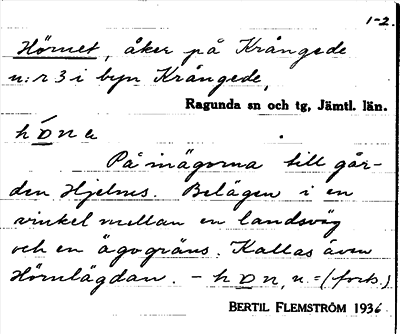 1-2.
Hörnet, åker på Krångede
n:r 3 i byn Krångede,
Ragunda sn och tg, Jämtl. län.
På inägorna till går-
den Hjelmes. Belägen i en
vinkel mellan en landsväg
och en ägogräns. Kallas även
Hörnlägdan. – (forts.)
BERTIL FLEMSTRÖM 1936